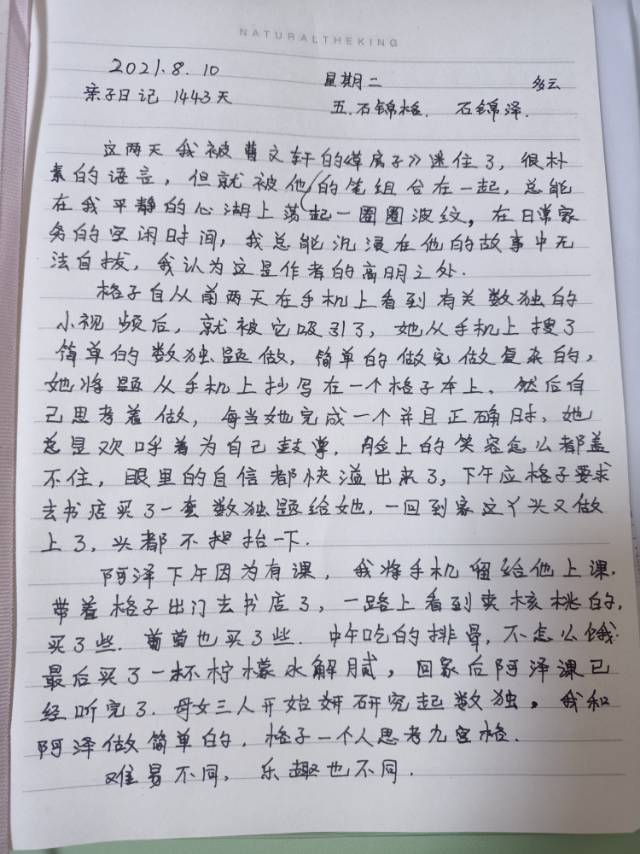 NATURALTHEKING
2021.8.10 星期二 多云
亲子日记 1443天 五.石锦格. 石锦泽.
这两天我被曹文轩的《草房子》迷住了,很朴
素的语言,但就被他的笔组合在一起,总能
在我平静的心湖上荡起一圈圈波纹,在日常家
务的空闲时间,我总能沉浸在他的故事中无
法自拔,我认为这是作者的高明之处.
格子自从前两天在手机上看到有关数独的
小视频后,就被它吸引了,她从手机上搜了
简单的数独题做,简单的做完做复杂的,
她将题从手机上抄写在一个格子本上、然后自
己思考着做,每当她完成一个并且正确时、她
总是欢呼着为自己鼓掌.脸上的笑容怎么都盖
不住,眼里的自信都快溢出来了,下午应格子要求
去书店买了一套数独题给她.一回到家这丫头又做
上了,头都不抬一下.
阿泽下午因为有课,我将手机留给他上课.
带着格子出门去书店了,一路上看到卖核桃的,
买了些.葡萄也买了些.中午吃的排骨,不怎么饿.
最后买了一杯柠檬水解腻,回家后阿泽课已
经听完了.母女三人开始研究起数独,我和
阿泽做简单的,格子一个人思考九宫格.
难易不同,乐趣也不同.